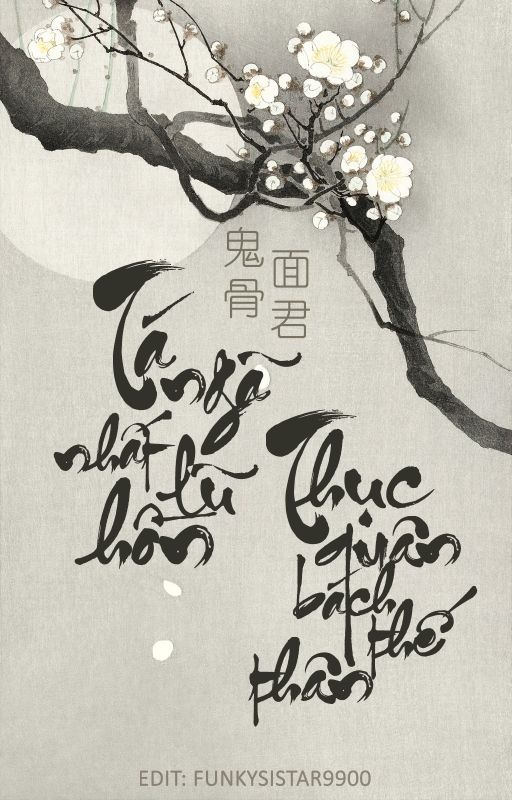 鬼骨
面君
Tá
ngã
nhất
lũ
hồn
Thục
quân
bách
thế
thân
EDIT: FUNKYSISTAR9900